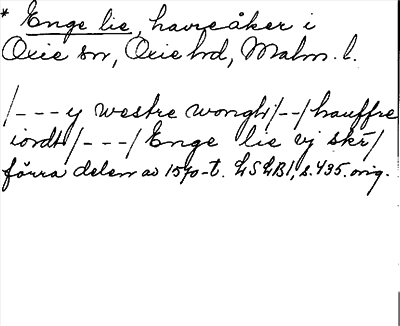 * Enge lie, havreåker i
Oxie sn, Oxie hd, Malm. l.
/--- y westre wongh /--/ hauffre
iordt /---/ Enge lie vj skr̄ /
förra delen av 1570-t. LSLBI, s. 435. orig.